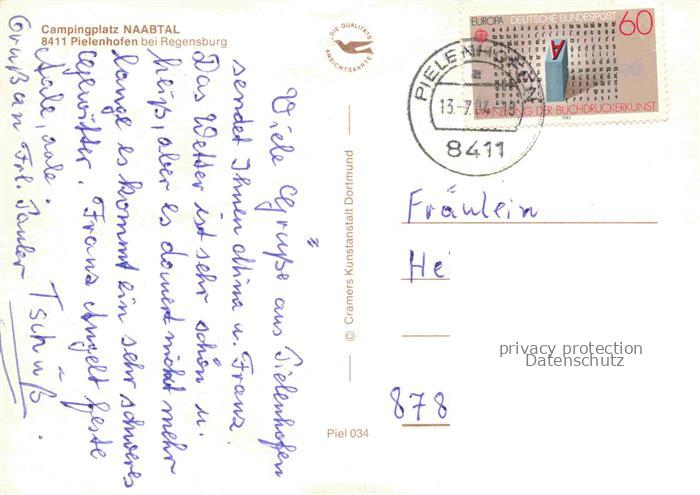 Campingplatz NAABTAL
8411 Pielenhofen bei Regensburg
DIE QUALITÄTS
ANSICHTSKARTE
EUROPA DEUTSCHE BUNDESPOST 60
A
ERFINDUNG DER BUCHDRUCKERKUNST
1983
PIELENHOFEN
a
13.-7.
8411
Viele Grüße aus Pielenhofen
sendet Ihnen Mina u. Franz.
Das Wetter ist sehr schön u.
heiß, aber es dauert nicht mehr
lange es kommt ein sehr schweres
Gewitter. Franz Angelt feste
Aale, aale.
Tschüß.
Gruß an Frl.
© Cramers Kunstanstalt Dortmund
Piel 034
Fräulein
Hei
878
privacy protection
Datenschutz